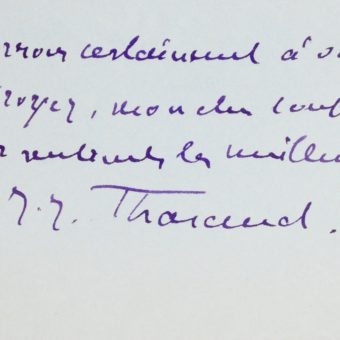 certainement à
croyez, mon cher conf
sentiments les meilleu
J. J. Tharaud.